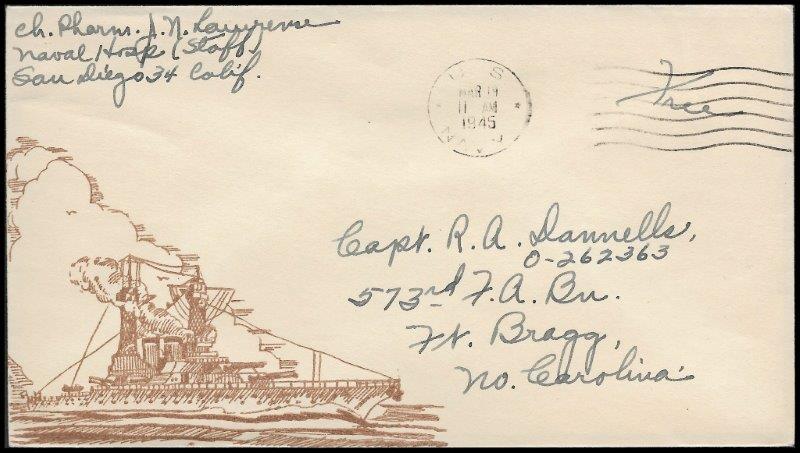 Ch. Pharm. J. N. Lawrence
Naval Hosp (Staff)
San Diego 34 Calif.
U.S.
MAR 19
11 AM
1945
NAVY
Free
Capt. R. A. Dannells,
O-262363
573rd F. A. Bn.
Ft. Bragg,
No. Carolina.